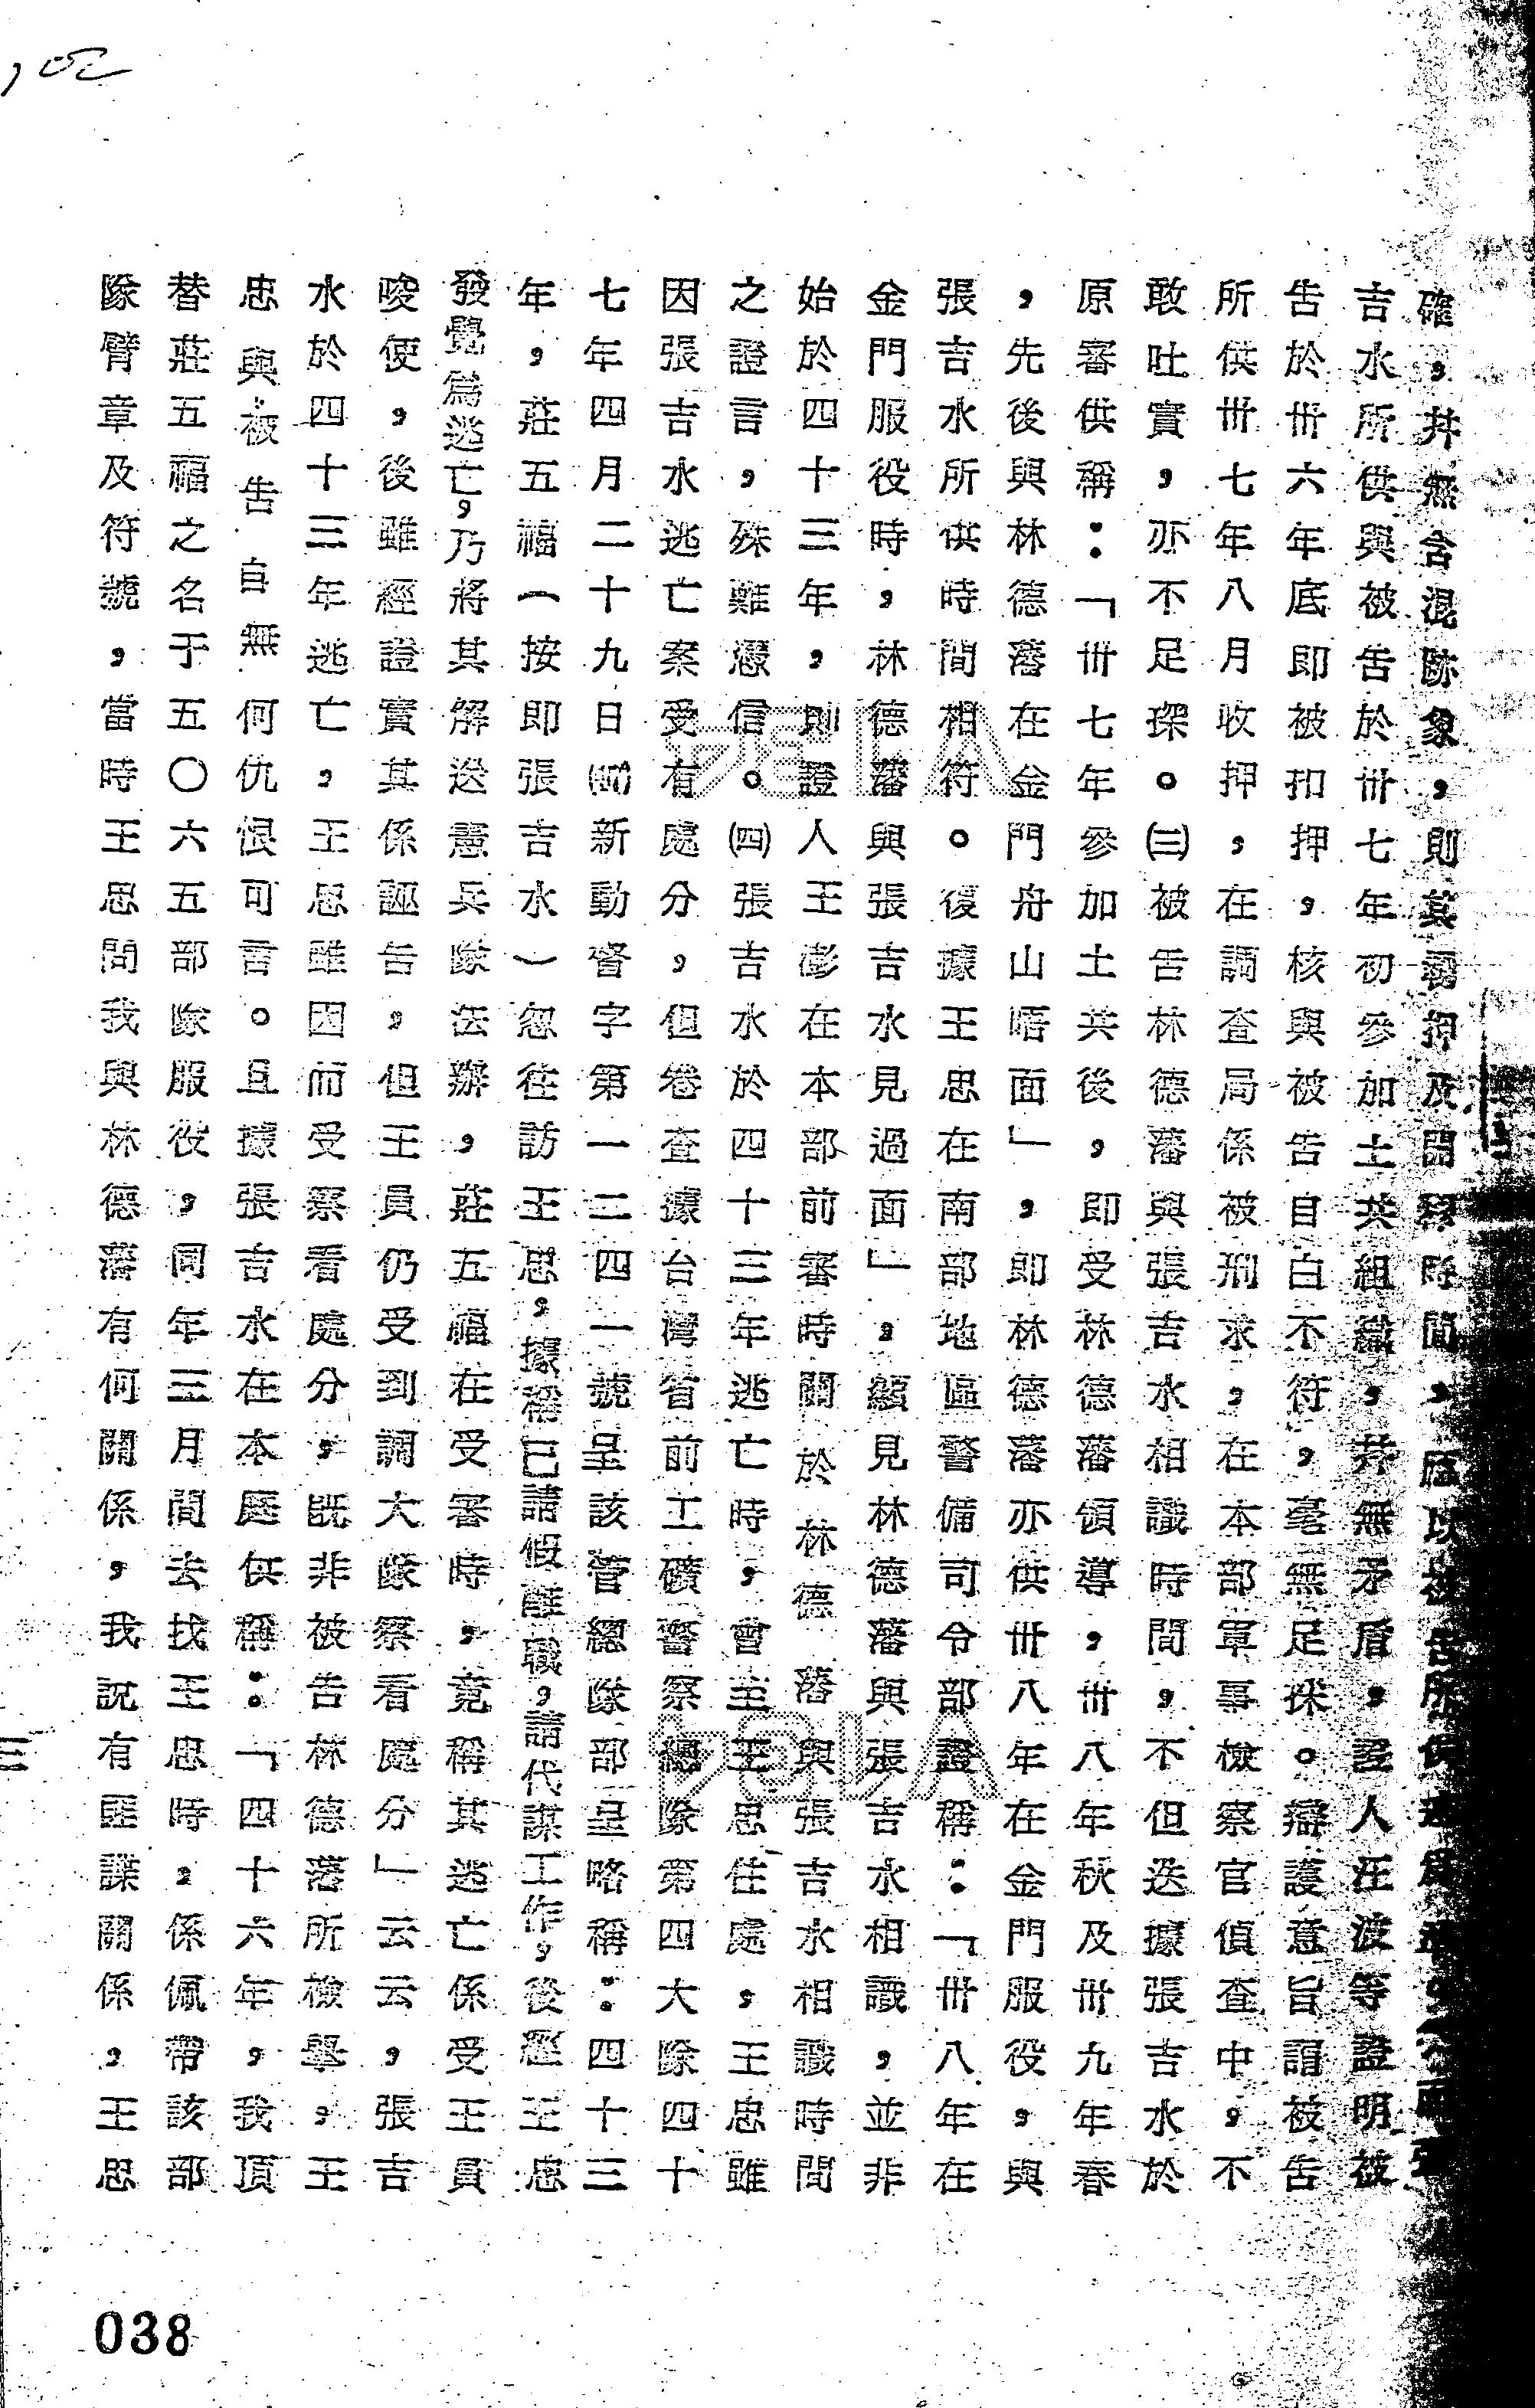 確，并無含混跡象，則其羈押及開釋時間，應以被告所供
吉水所供與被告於卅七年初參加土共組織，并無矛盾，證人汪波等證明被
告於卅六年底即被扣押，核與被告自白不符，毫無足採。辯護意旨謂被告
所供卅七年八月收押，在調查局係被刑求，在本部軍事檢察官偵查中，不
敢吐實，亦不足採。㈢被告林德藩與張吉水相識時間，不但迭據張吉水於
原審供稱：「卅七年參加土共後，即受林德藩領導，卅八年秋及卅九年春
，先後與林德藩在金門舟山晤面」，即林德藩亦供卅八年在金門服役，與
張吉水所供時間相符。復據王思在南部地區警備司令部證稱：「卅八年在
金門服役時，林德藩與張吉水見過面」。顯見林德藩與張吉水相識，並非
始於四十三年，則證人王澎在本部前審時關於林德藩與張吉水相識時間
之證言，殊難憑信。㈣張吉水於四十三年逃亡時，會王思住處，王忠雖
因張吉水逃亡案受有處分，但卷查據台灣省前工礦警察總隊第四大隊四十
七年四月二十九日新動督字第一二四一號呈該管總隊部呈略稱：四十三
年，莊五福（按即張吉水）忽往訪王思，據稱已請假離職，請代謀工作，後經王忠
發覺為逃亡，乃將其解送憲兵隊法辦，莊五福在受審時，竟稱其逃亡係受王員
唆使，後雖經證實其係誣告，但王員仍受到調大隊察看處分」云云，張吉
水於四十三年逃亡，王思雖因而受察看處分，既非被告林德藩所檢舉，王
忠與被告自無何仇恨可言。且據張吉水在本庭供稱：「四十六年，我頂
替莊五福之名于五〇六五部隊服役，同年三月間去找王思時，係佩帶該部
隊臂章及符號，當時王思問我與林德藩有何關係，我說有匪諜關係，王思
三
038